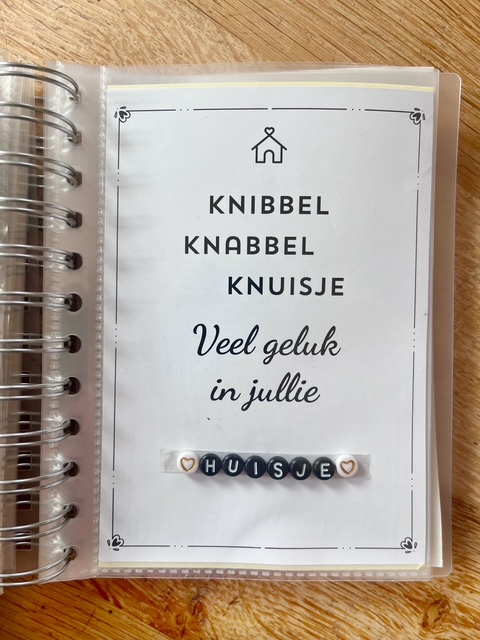 KNIBBEL
KNABBEL
KNUISJE
Veel geluk
in jullie
HUISJE